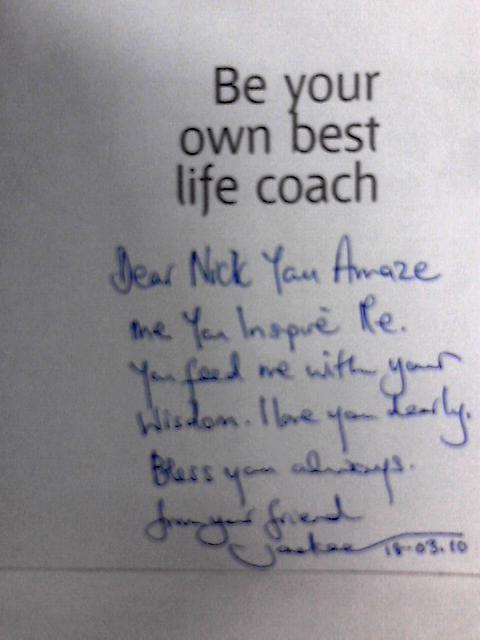 Be your
own best
life coach
Dear Nick You Amaze
me You Inspire Me.
You feed me with your
Wisdom. I love you dearly.
Bless you always.
from your friend
18-03.10